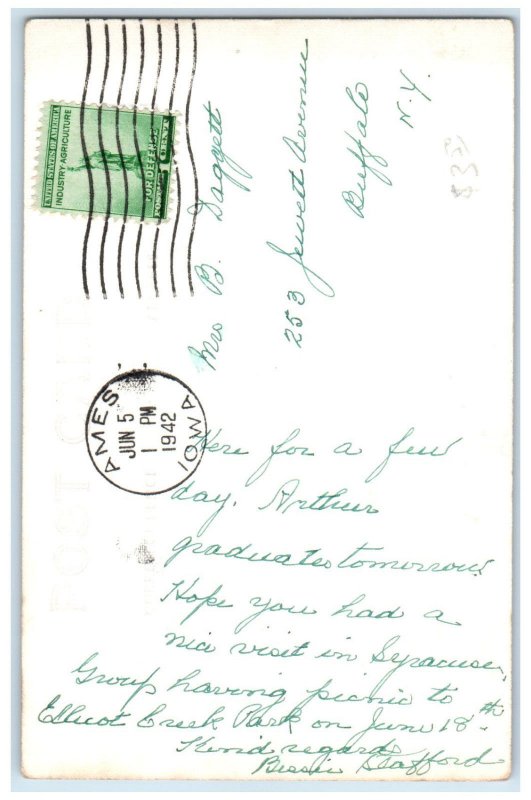 UNITED STATES OF AMERICA
INDUSTRY AGRICULTURE
FOR DEFENSE
AMES
JUN 5
1 PM
1942
IOWA
Mrs B. Daggett
253 Jewett Avenue
Buffalo
N.Y.
Here for a few
day. Arthur
graduates tomorrow.
Hope you had a
nice visit in Syracuse.
Group having picnic to
Ellicot Creek Park on June 18th.
Kind regards
Bessie Stafford
POST CARD